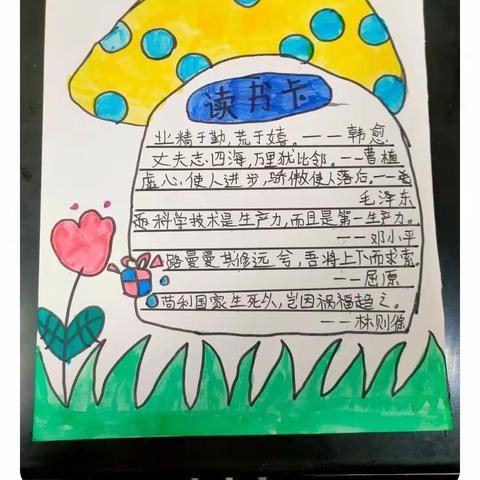 读书卡
业精于勤,荒于嬉。——韩愈
丈夫志四海,万里犹比邻。——曹植
虚心使人进步,骄傲使人落后。——毛
毛泽东
科学技术是生产力,而且是第一生产力。
——邓小平
路曼曼其修远兮,吾将上下而求索。
——屈原
苟利国家生死久,岂因祸福趋之。
——林则徐